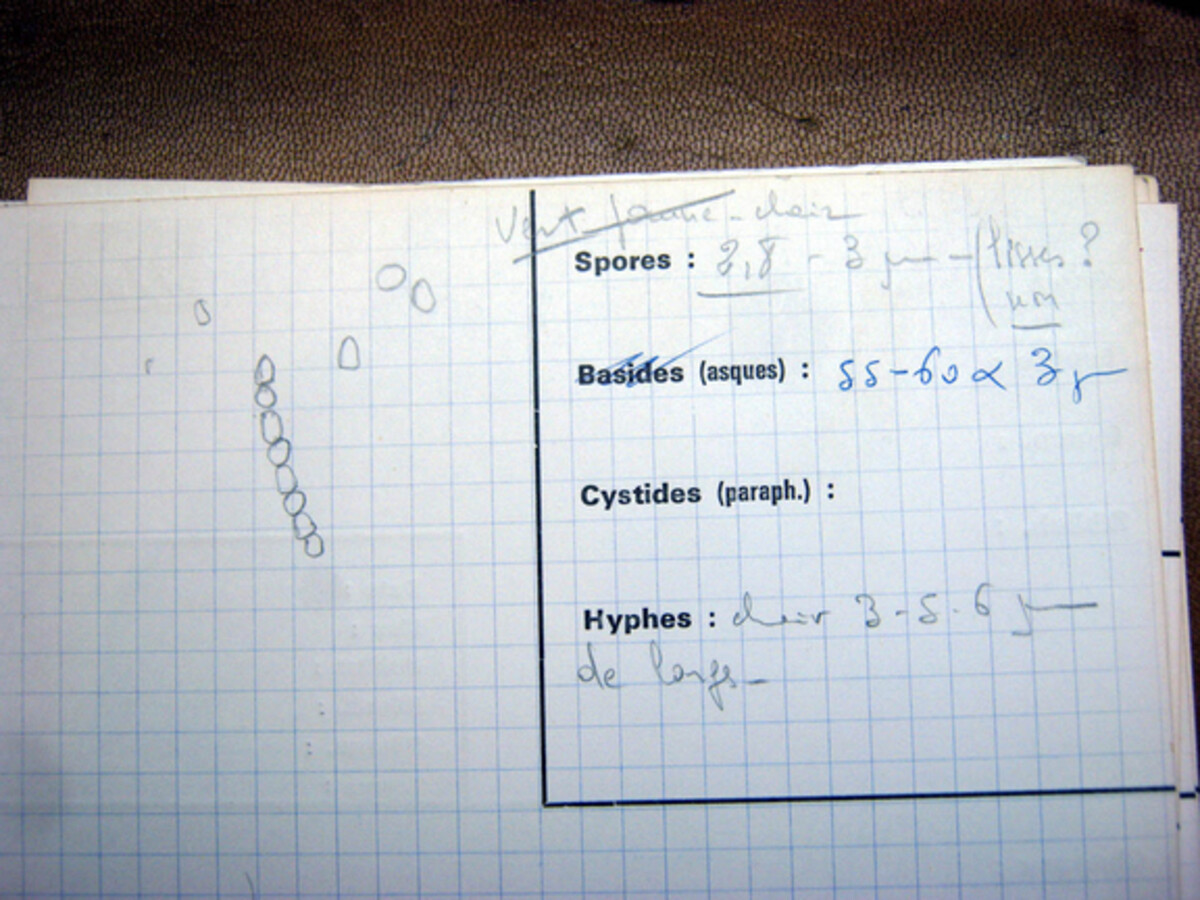 Vert jaune - clair
Spores : 2,8 - 3 µm - (lisses ?
non
Basides (asques) : 55-60 x 3 µ
Cystides (paraph.) :
Hyphes : chair 3-5-6 µm
de large -